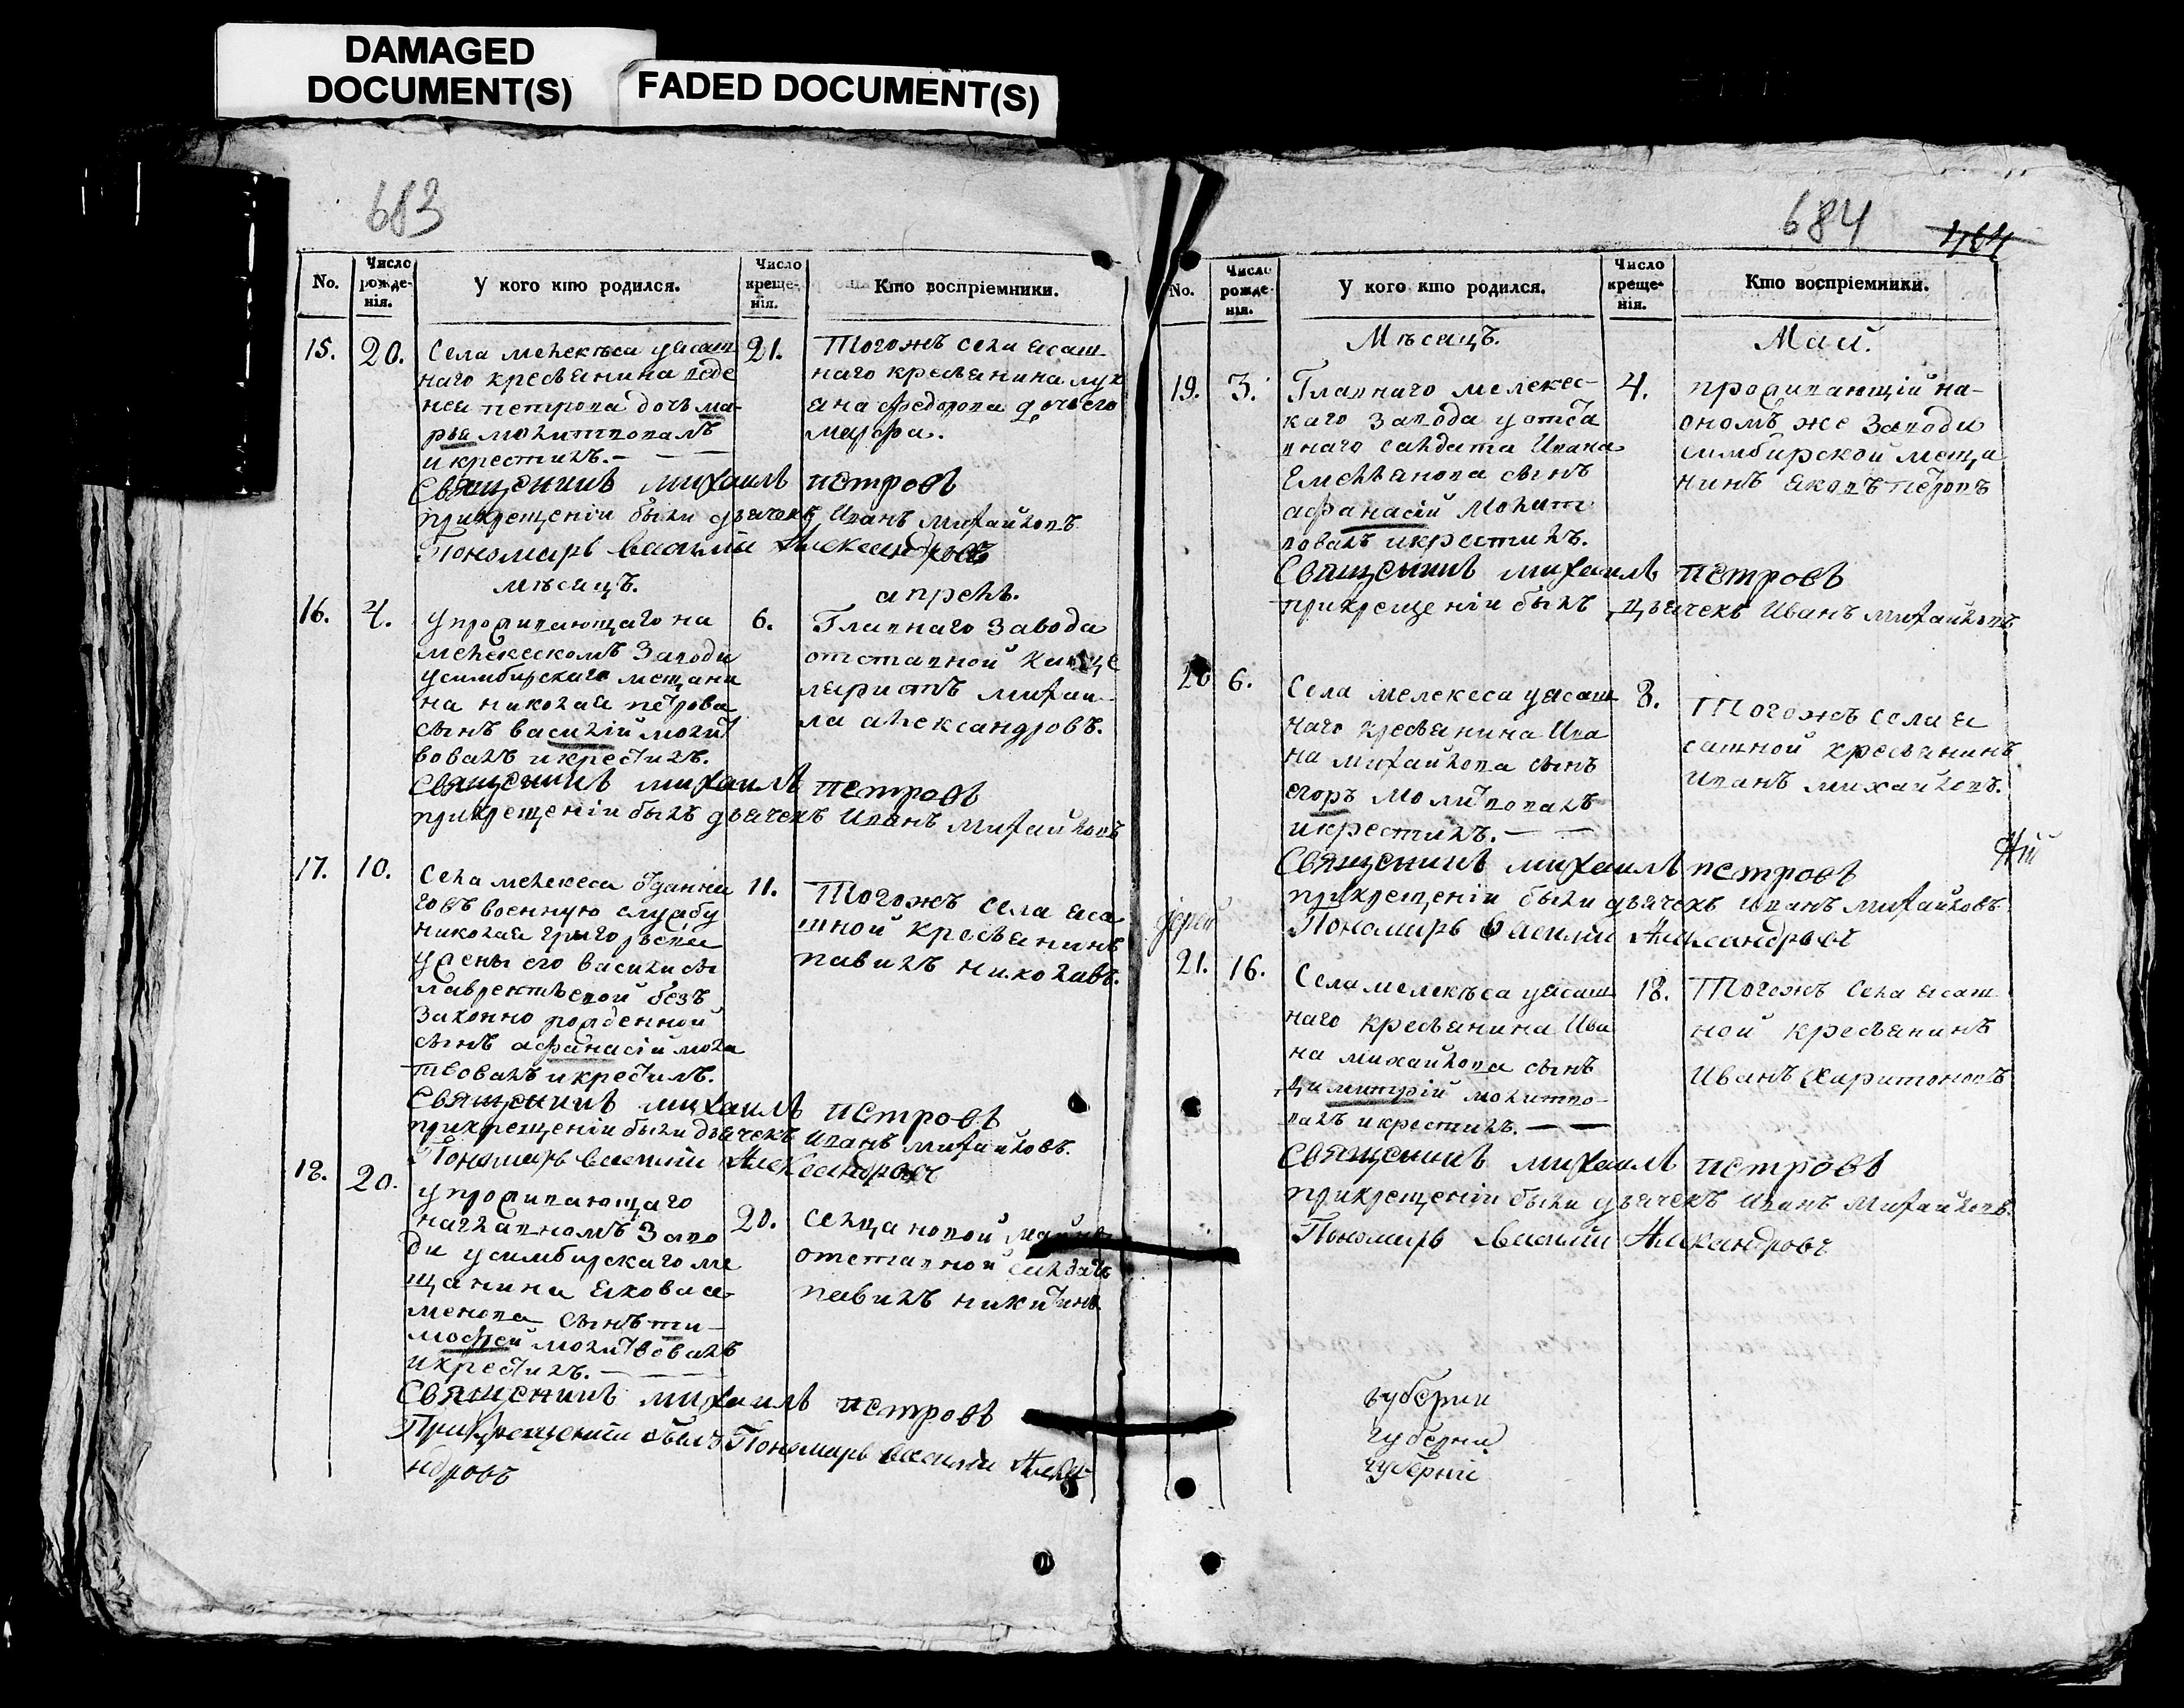 DAMAGED
DOCUMENT(S)
FADED DOCUMENT(S)
683
No.
Число рожденія.
У кого кто родился.
Число крещенія.
Кто воспріемники.
15.
20.
Села мелекѣса уясаш
наго кресьянина
нея петрова дочь ма-
рья молитвовалъ
и крестилъ.
21.
Тогожъ села ясаш
наго кресьянина лук
яна федорова дочь его
марфа.
Священникъ михаилъ петровъ
прикрещеніи были дьячекъ Иванъ михайловъ
Пономарь василий Александровъ
мѣсяцъ.
апрель.
16.
4.
упроживающаго на
мелекескомъ Заводи
усимбирскаго мещани
на николая петрова
сынъ василій молит
вовалъ и крестилъ.
6.
Главнаго Завода
отставной канце
ляристъ михаи
ла александровъ.
Священникъ михаилъ петровъ
прикрещеніи былъ дьячекъ Иванъ михайловъ
17.
10.
Села мелекеса отданна
говъ военную службу
николая григорьева
ужены его василисы
лаврентьевой безъ
законно рожденной
сынъ афанасій моли
твовалъ и крестилъ.
11.
Тогожъ села яса
шной кресьянинъ
павилъ николавъ.
Священникъ михаилъ петровъ
прикрещеніи были дьячекъ Иванъ михайловъ.
Пономарь василий Александровъ
18.
20.
упроживающаго
наглавномъ Заво
ди усимбирскаго ме
щанина якова се
менова сынъ ти-
мофей молитвовалъ
и крестилъ.
20.
сельца новой майны
отставной салдатъ
павилъ никитинъ
Священникъ михаилъ петровъ
Прикрещеніи былъ Пономарь василий Алекса
ндровъ
684
464
No.
Число рожденія.
У кого кто родился.
Число крещенія.
Кто воспріемники.
Мѣсяцъ.
Маи.
19.
3.
Главнаго мелекес-
каго Завода уотста
внаго салдата Ивана
Емельянова сынъ
афанасій молит
вовалъ и крестилъ.
4.
проживающій на-
ономъ же Заводи
симбирской меща
нинъ яковъ петровъ
Священникъ михаилъ петровъ
прикрещеніи былъ дьячекъ Иванъ михайловъ
20
6.
Села мелекеса уясаш
наго кресьянина Ива
на михайлова сынъ
егоръ молитвовалъ
и крестилъ.
8.
Тогожъ села я
сашной кресьянинъ
Иванъ михайловъ.
Священникъ михаилъ петровъ
прикрещеніи были дьячекъ Иванъ михайловъ
іерей
Пономарь василий Александровъ
21.
16.
Села мелекѣса уясаш
наго кресьянина Ива
на михайлова сынъ
димитрій молитво-
валъ и крестилъ.
18.
Тогожъ села ясаш
ной кресьянинъ
Иванъ харитоновъ
Священникъ михаилъ петровъ
прикрещеніи были дьячекъ Иванъ михайловъ.
Пономарь василий Александровъ
губерни
губерни
губерніи